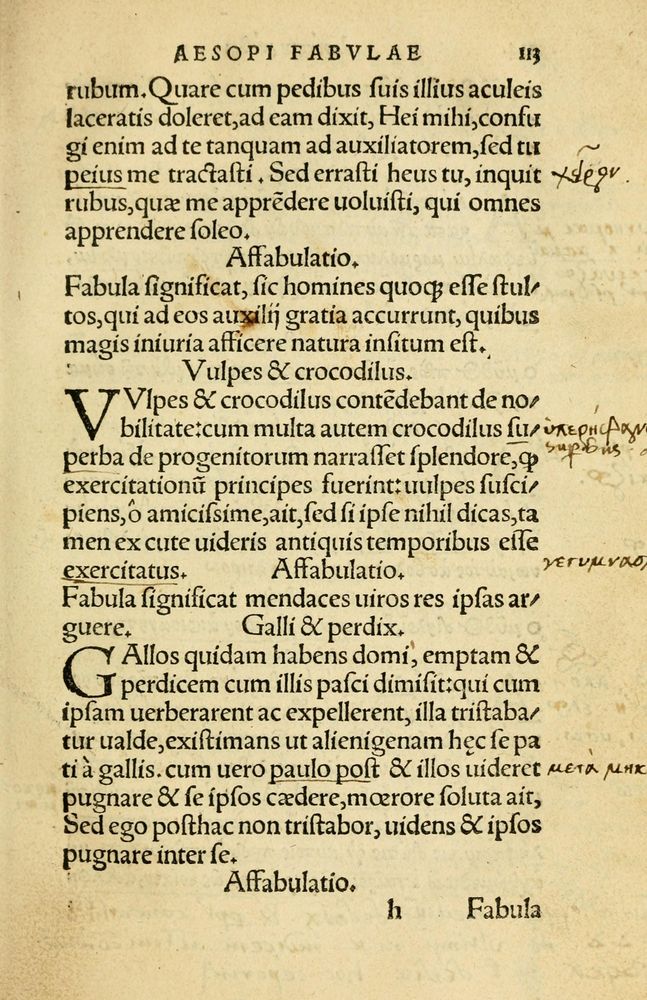 AESOPI FABVLAE 113
rubum. Quare cum pedibus ſuis illius aculeis
laceratis doleret, ad eam dixit, Hei mihi, confu
gi enim ad te tanquam ad auxiliatorem, ſed tu
peius me tractaſti. Sed erraſti heus tu, inquit
rubus, quæ me apprẽdere uoluiſti, qui omnes
apprendere ſoleo.
Affabulatio.
Fabula ſignificat, ſic homines quoqꝫ eſſe ſtul/
tos, qui ad eos auxilij gratia accurrunt, quibus
magis iniuria afficere natura inſitum eſt.
Vulpes & crocodilus.
VVlpes & crocodilus contẽdebant de no/
bilitate: cum multa autem crocodilus ſu/
perba de progenitorum narraſſet ſplendore, ꝙ
exercitationũ principes fuerint: uulpes ſuſci/
piens, ô amiciſſime, ait, ſed ſi ipſe nihil dicas, ta
men ex cute uideris antiquis temporibus eſſe
exercitatus. Affabulatio.
Fabula ſignificat mendaces uiros res ipſas ar/
guere. Galli & perdix.
GAllos quidam habens domi, emptam &
perdicem cum illis paſci dimiſit: qui cum
ipſam uerberarent ac expellerent, illa triſtaba/
tur ualde, exiſtimans ut alienigenam hęc ſe pa
ti à gallis. cum uero paulo poſt & illos uideret
μετὰ μικ
pugnare & ſe ipſos cædere, mœrore ſoluta ait,
Sed ego poſthac non triſtabor, uidens & ipſos
pugnare inter ſe.
Affabulatio.
h Fabula